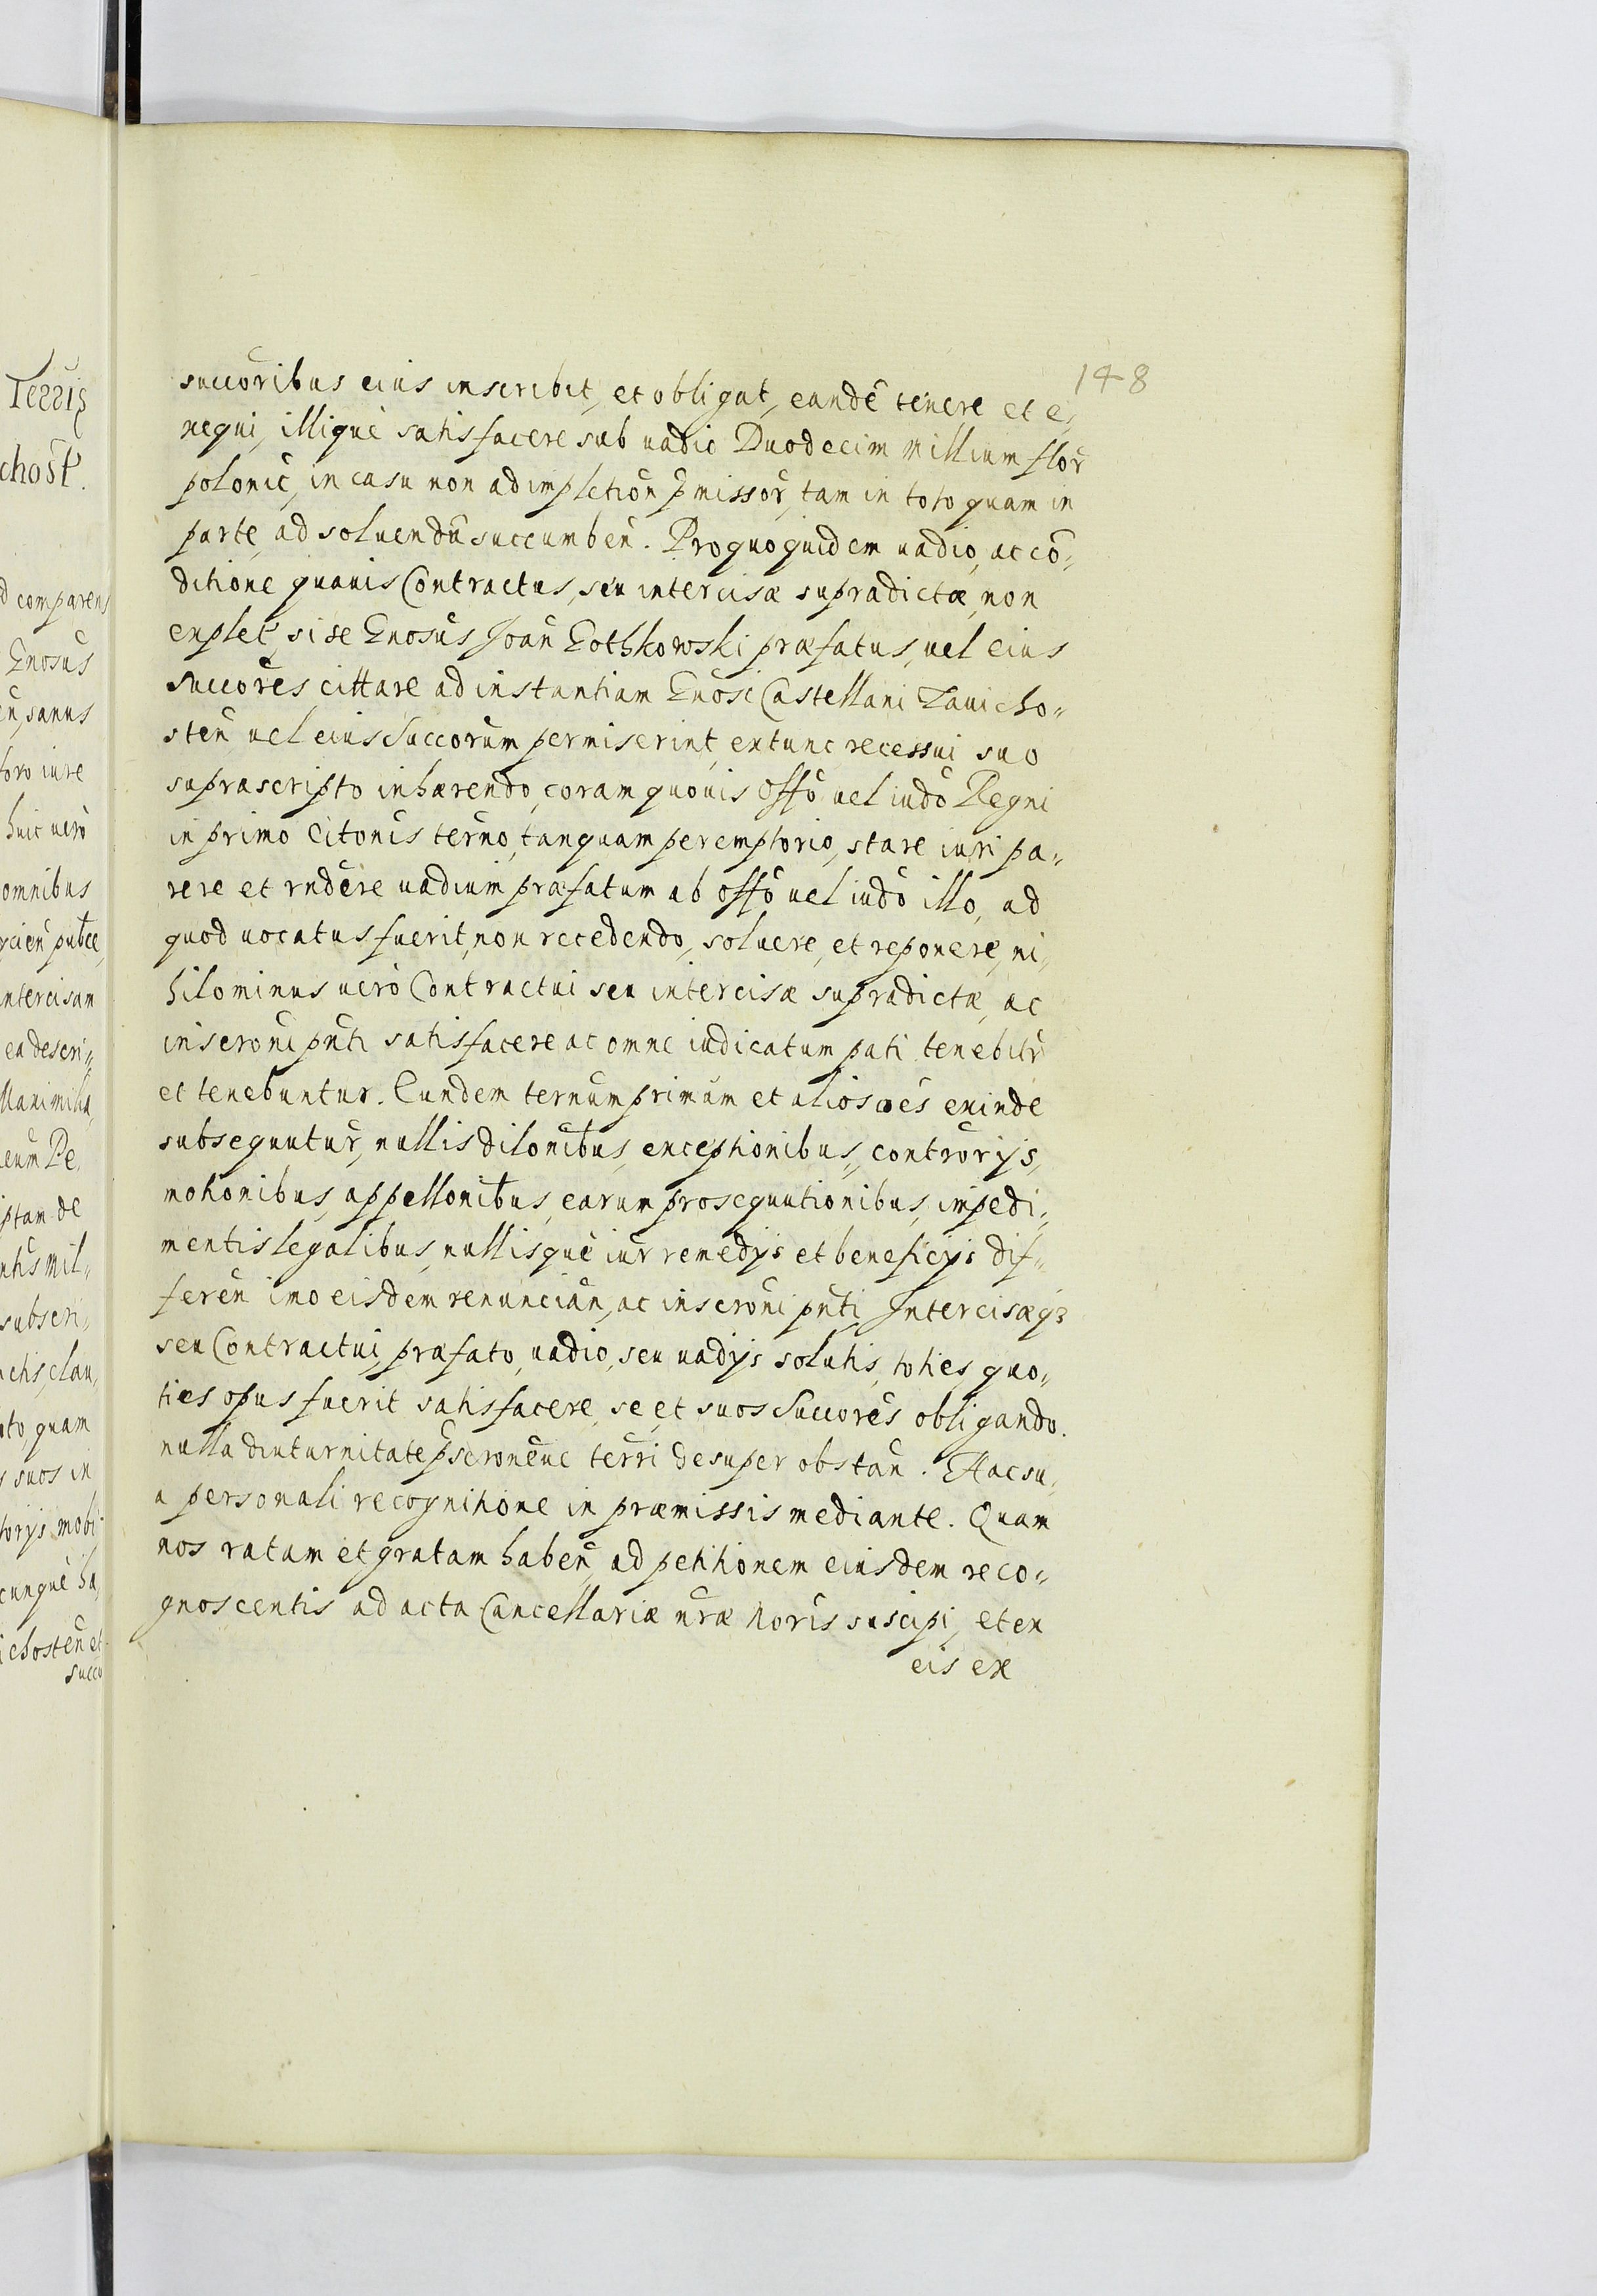 148
succoribus eius inscribit, et obligat, eandē tenere et e„
xequi, illiquè satisfacere sub uadio Duodecim Millium flor
polonic, in casu non adimpletion pmissor, tam in toto quam in
parte, ad soluendū succumben. Pro quo quidem uadio, ac cō„
ditione quauis Contractus, seu intercisæ supradictæ, non
explet, si se Gnosus Joan Gothkowski præfatus, uel eius
succores cittare ad instantiam Gnosi Castellani Zauicho„
sten uel eius Succorum permiserint, extunc recessui suo
suprascripto inhærendo, coram quouis Offo uel iudo Regni
in primo Citonis terno, tanquam peremptorio, stare iuri pa„
rere et rndere uadium præfatum ab Offo uel iudo illo, ad
quod uocatus fuerit, non recedendo, soluere, et reponere, ni„
hilominus uerò Contractui seu intercisæ supradictæ, ac
inscroni pnti satisfacere ac omne iudicatum pati tenebitr
et tenebuntur. Eundem ternum primum et alios oēs exinde
subsequutur, nullis dilonibus, exceptionibus, controrijs,
motionibus, appellonibus, earum prosequutionibus, impedi„
mentis legalibus, nullisquè iur remedijs et beneficijs dif„
feren imo eisdem renuncian, ac inscroni pnti Intercisæq3
seu Contractui præfato, uadio, seu uadijs solutis, toties quo„
ties opus fuerit satisfacere, se et suos Succores obligando.
nulla diuturnitate pscroneue terri desuper obstan. Hac su„
a personali recognitione in præmissis mediante. Quam
nos ratam et gratam haben, ad petitionem eiusdem reco„
gnoscentis ad acta Cancellariæ nræ Noris suscipi, et ex
eis ex
Terris
chost.
comparens
Gnosus
sanus
toro iure
huic uerò
omnibus
intercisam
ea descri„
eum Re„
ptam de
subscri„
clau„
quam
suos in
mobi
cunquè ha„
ichosten et
succo